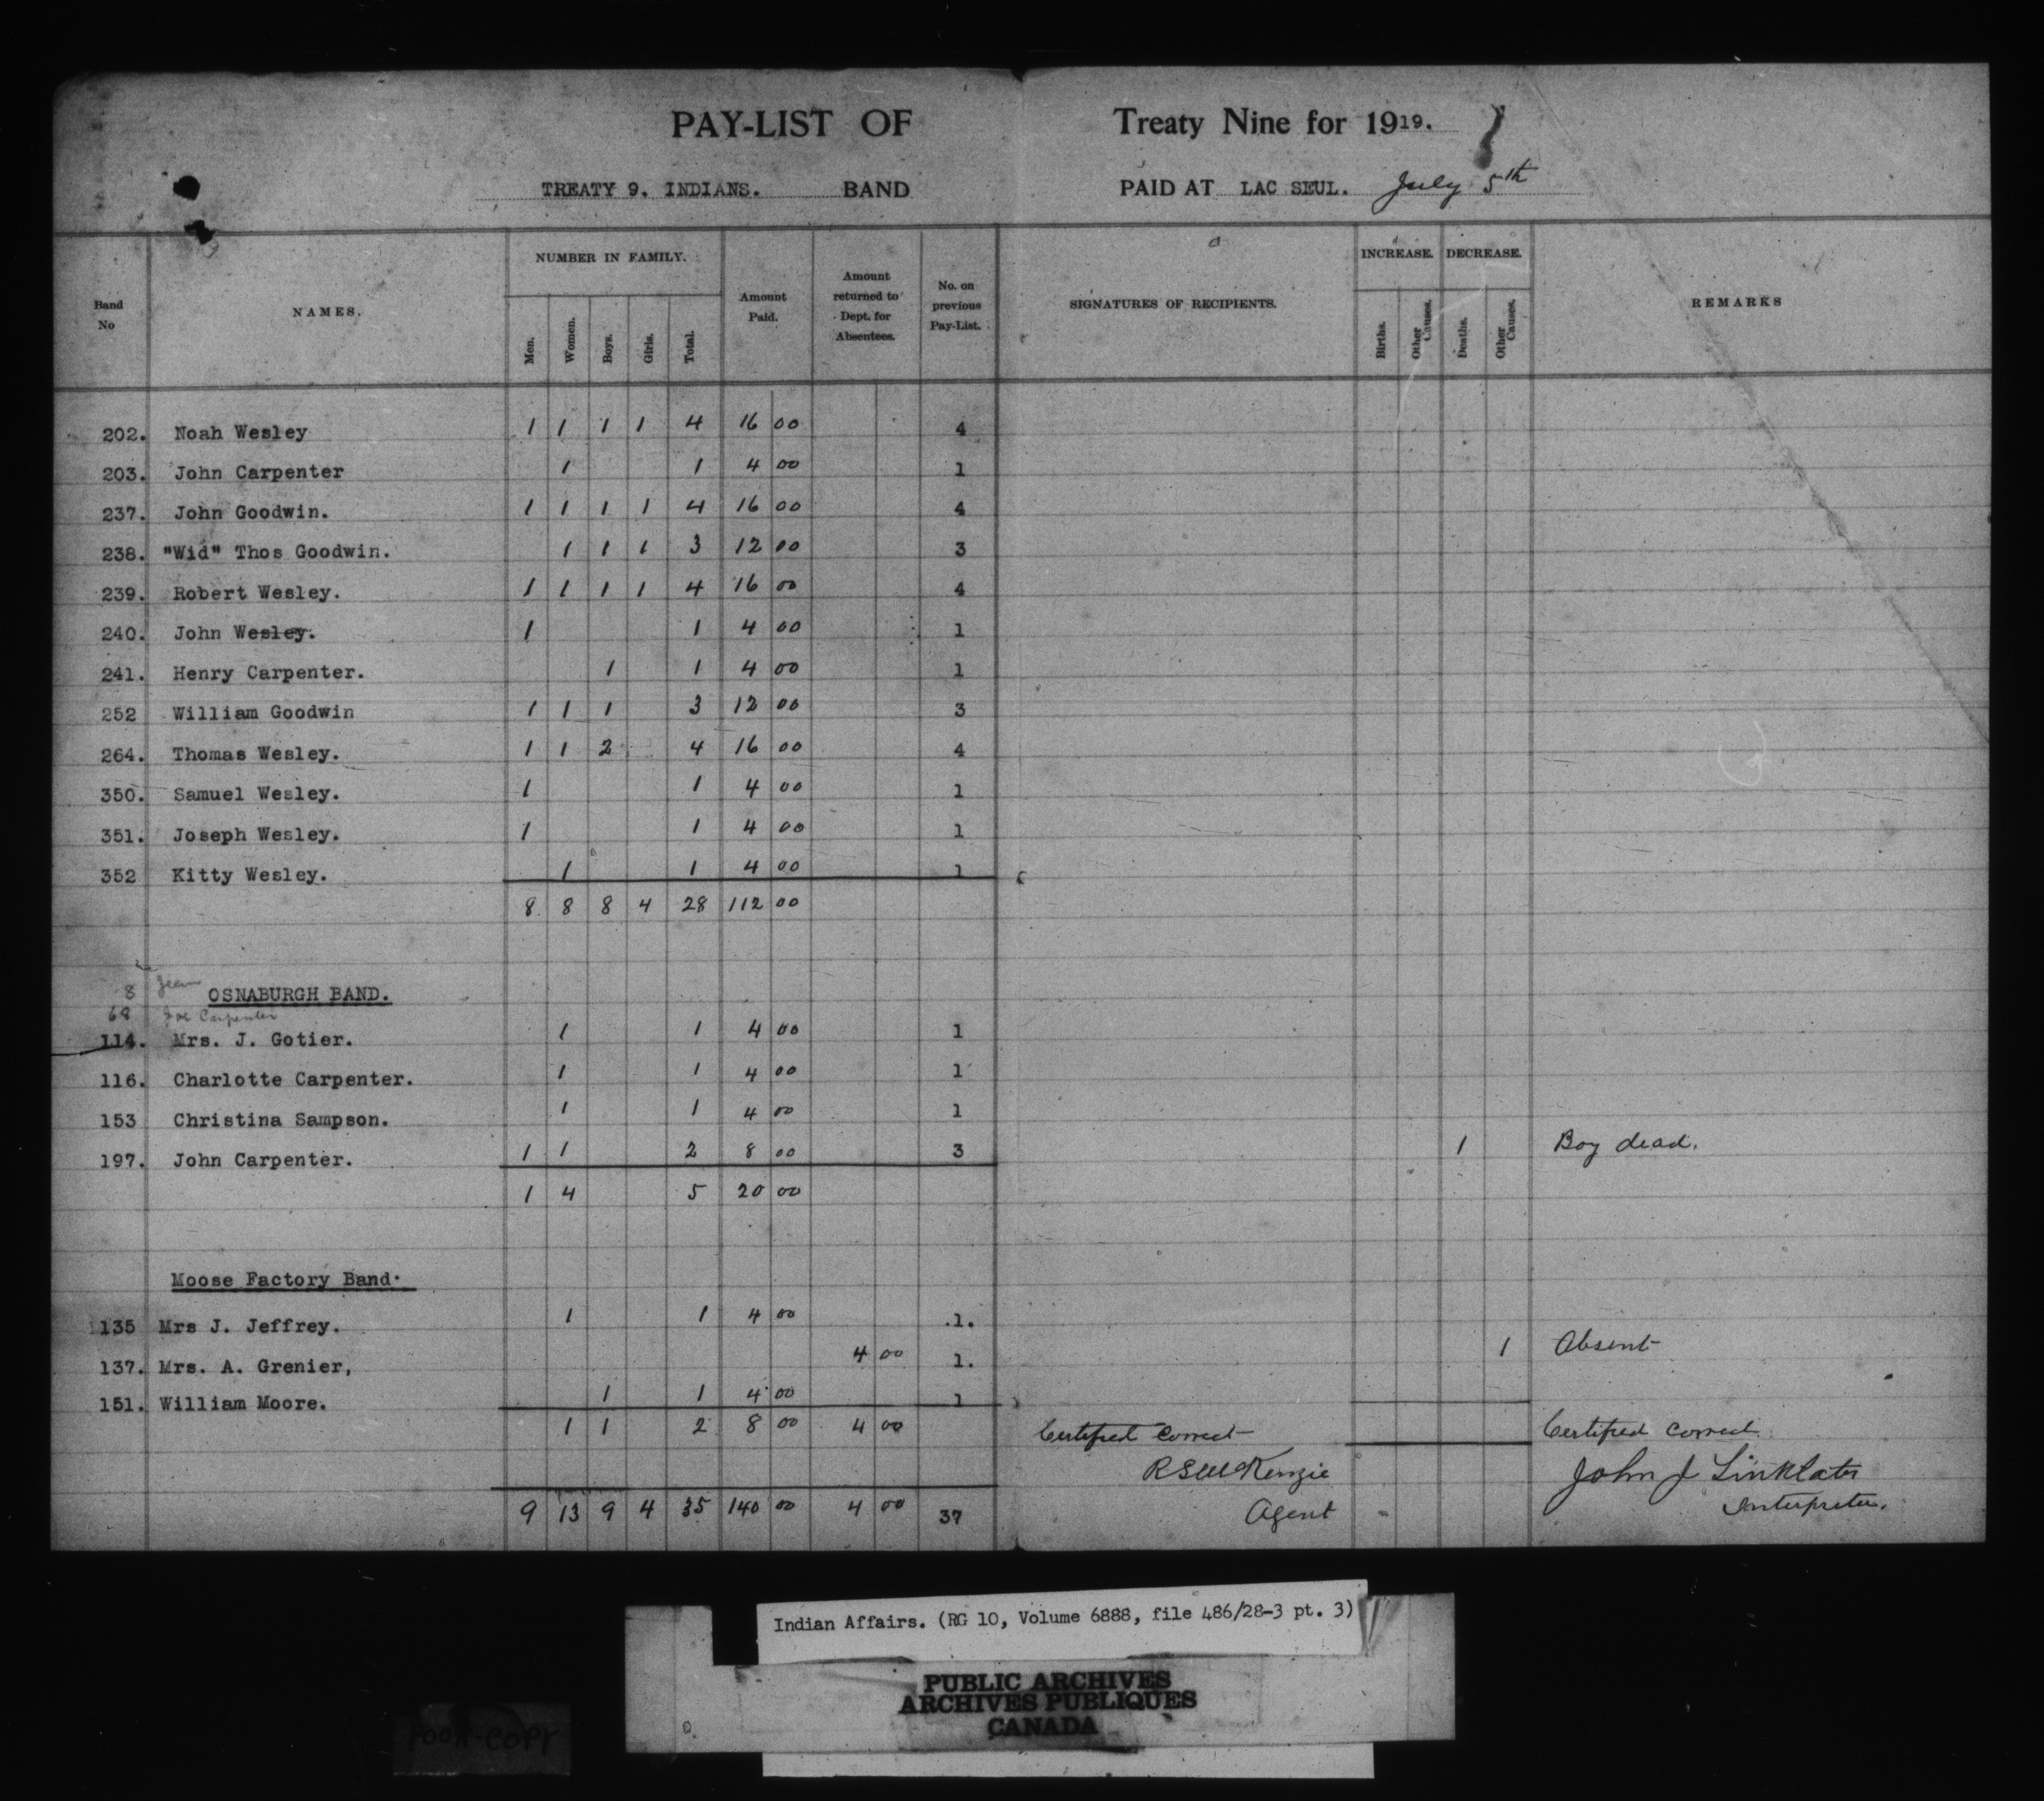 PAY-LIST OF Treaty Nine for 1919.
TREATY 9. INDIANS. BAND PAID AT LAC SEUL. July 5th
Band No NAMES. NUMBER IN FAMILY. Men. Women. Boys. Girls. Total. Amount Paid. Amount returned to Dept. for Absentees. No. on previous Pay-List. SIGNATURES OF RECIPIENTS. INCREASE. Births. Other Causes. DECREASE. Deaths. Other Causes. REMARKS
202. Noah Wesley 1 1 1 1 4 16 00 4
203. John Carpenter 1 1 4 00 1
237. John Goodwin. 1 1 1 1 4 16 00 4
238. "Wid" Thos Goodwin. 1 1 1 3 12 00 3
239. Robert Wesley. 1 1 1 1 4 16 00 4
240. John Wesley. 1 1 4 00 1
241. Henry Carpenter. 1 1 4 00 1
252 William Goodwin 1 1 1 3 12 00 3
264. Thomas Wesley. 1 1 2 4 16 00 4
350. Samuel Wesley. 1 1 4 00 1
351. Joseph Wesley. 1 1 4 00 1
352 Kitty Wesley. 1 1 4 00 1
8 8 8 4 28 112 00
8
OSNABURGH BAND.
68 Joe Carpenter
114. Mrs. J. Gotier. 1 1 4 00 1
116. Charlotte Carpenter. 1 1 4 00 1
153 Christina Sampson. 1 1 4 00 1
197. John Carpenter. 1 1 2 8 00 3 1 Boy dead.
1 4 5 20 00
Moose Factory Band.
135 Mrs J. Jeffrey. 1 1 4 00 1.
137. Mrs. A. Grenier, 4 00 1. 1 Absent
151. William Moore. 1 1 4 00 1
1 1 2 8 00 4 00 Certified Correct Certified Correct
R S McKenzie John J Linklater
Agent Interpreter.
9 13 9 4 35 140 00 4 00 37
Indian Affairs. (RG 10, Volume 6888, file 486/28-3 pt. 3)
PUBLIC ARCHIVES
ARCHIVES PUBLIQUES
CANADA
POOR COPY